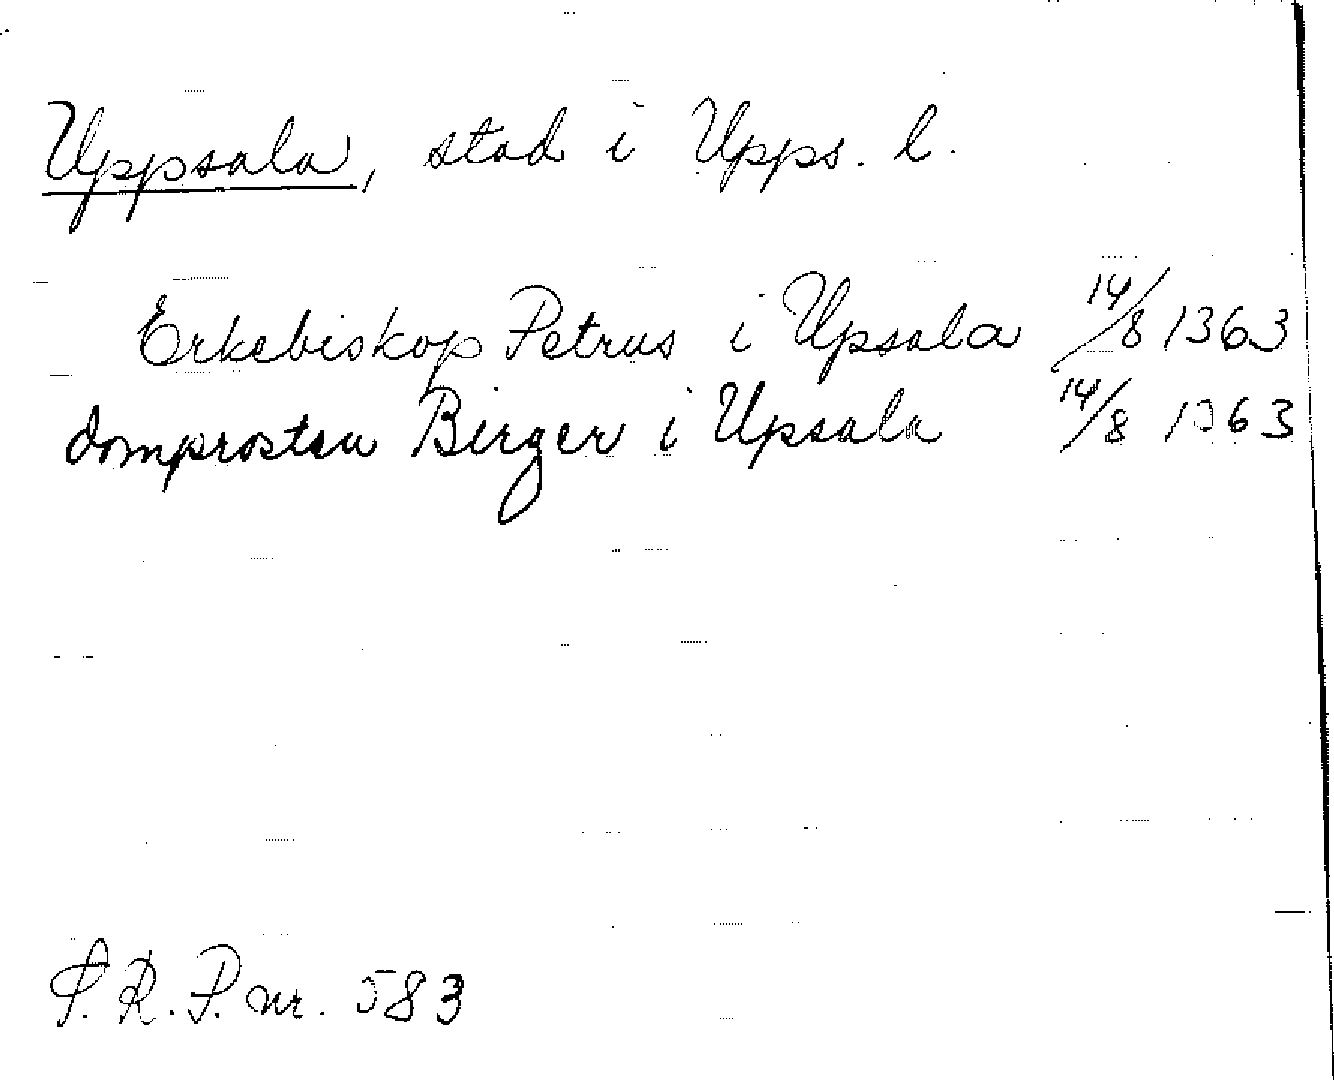 Uppsala, stad i Upps. l.
Erkebiskop Petrus i Upsala 14/8 1363
domprosten Birger i Upsala 14/8 1363
S. R. P. nr. 583